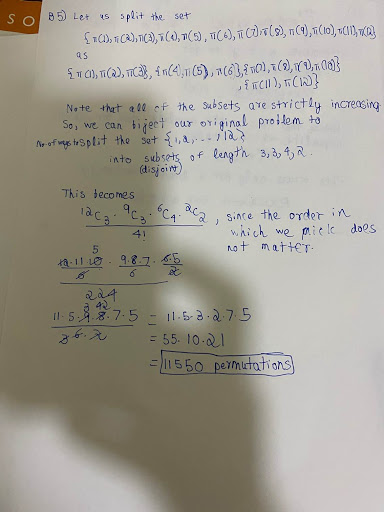 S O
B5) Let us split the set
{π(1), π(2), π(3), π(4), π(5), π(6), π(7), π(8), π(9), π(10), π(11), π(12)}
as
{π(1), π(2), π(3)}, {π(4), π(5), π(6)}, {π(7), π(8), π(9), π(10)}
, {π(11), π(12)}
Note that all of the subsets are strictly increasing
So, we can biject our original problem to
No. of ways to split the set {1, 2, ..., 12}
into subsets of length 3, 3, 4, 2.
(disjoint)
This becomes
12C3 · 9C3 · 6C4 · 2C2 / 4! , since the order in
which we pick does
not matter.
5
12·11·10 / 6 · 9·8·7 / 6 · 6·5 / 2
2 2 4
3 42
11·5·9·8·7·5 / 3 6·2 = 11·5·3·2·7·5
= 55·10·21
= 11550 permutations